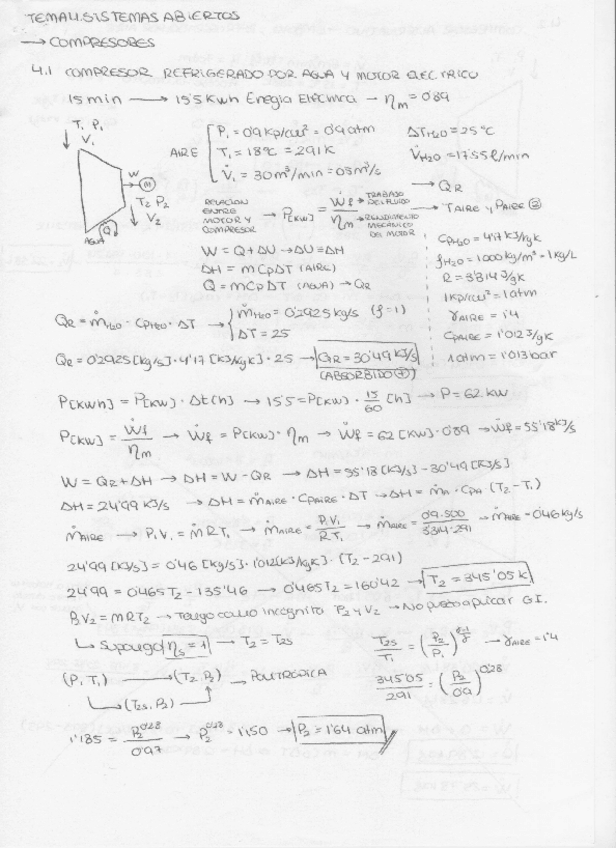 TEMA 4. SISTEMAS ABIERTOS
→ COMPRESORES
4.1 COMPRESOR REFRIGERADO POR AGUA Y MOTOR ELECTRICO
15 min → 15'5 Kwh Enegia Electrica - ηm = 0'89
T1 P1
V1
W
M
T2 P2
V2
Q
AGUA
AIRE
P1 = 0'9 Kp/cm² = 0'9 atm
T1 = 18ºC = 291 K
V̇1 = 30 m³/min = 0'5 m³/s
ΔT H2O = 25 ºC
V̇ H2O = 17'55 l/min
→ QR
→ T AIRE y P AIRE ②
RELACION ENTRE MOTOR Y COMPRESOR → P[KW] = Ẇf / ηm
→ TRABAJO DEL FLUIDO
→ RENDIMIENTO MECANICO DEL MOTOR
W = Q + ΔU → ΔU = ΔH
ΔH = m Cp ΔT (AIRE)
Q = m Cp ΔT (AGUA) → QR
Cp H2O = 4'17 KJ/KgK
ρ H2O = 1000 kg/m³ = 1 Kg/L
1 Kp/cm² = 1 atm
γ AIRE = 1'4
Cp AIRE = 1'012 J/gK
1 atm = 1'013 bar
QR = ṁ H2O · Cp H2O · ΔT → ṁ H2O = 0'2925 kg/s (ρ = 1)
ΔT = 25
QR = 0'2925 [kg/s] · 4'17 [KJ/KgK] · 25 → QR = 30'49 KJ/s
(ABSORBIDO +)
P[KWh] = P[KW] · Δt [h] → 15'5 = P[KW] · 15/60 [h] → P = 62 KW
P[KW] = Ẇf / ηm → Ẇf = P[KW] · ηm → Ẇf = 62 [KW] · 0'89 → Ẇf = 55'18 KJ/s
W = QR + ΔH → ΔH = W - QR → ΔH = 55'18 [KJ/s] - 30'49 [KJ/s]
ΔH = 24'99 KJ/s → ΔH = ṁ AIRE · Cp AIRE · ΔT → ΔH = ṁA · CpA (T2 - T1)
ṁ AIRE → P1 V1 = ṁ R T1 → ṁ AIRE = P1 V1 / R T1 → ṁ AIRE = 0'9 · 500 / 3'314 · 291 → ṁ AIRE = 0'46 kg/s
24'99 [KJ/s] = 0'46 [kg/s] · 1'012 [KJ/KgK] · (T2 - 291)
24'99 = 0'465 T2 - 135'46 → 0'465 T2 = 160'42 → T2 = 345'05 K
P2 V2 = M R T2 → Tengo como incognita P2 y V2 → No puedo aplicar G.I.
↳ Supongo ηs = 1 → T2 = T2s
T2s / T1 = (P2 / P1)^(γ-1/γ) → γ AIRE = 1'4
(P1 T1) → (T2 P2) → POLITRÓPICA
↳ (T2s, P2)
345'05 / 291 = (P2 / 0'9)^0'28
1'185 = P2^0'28 / 0'97 → P2^0'28 = 1'150 → P2 = 1'64 atm